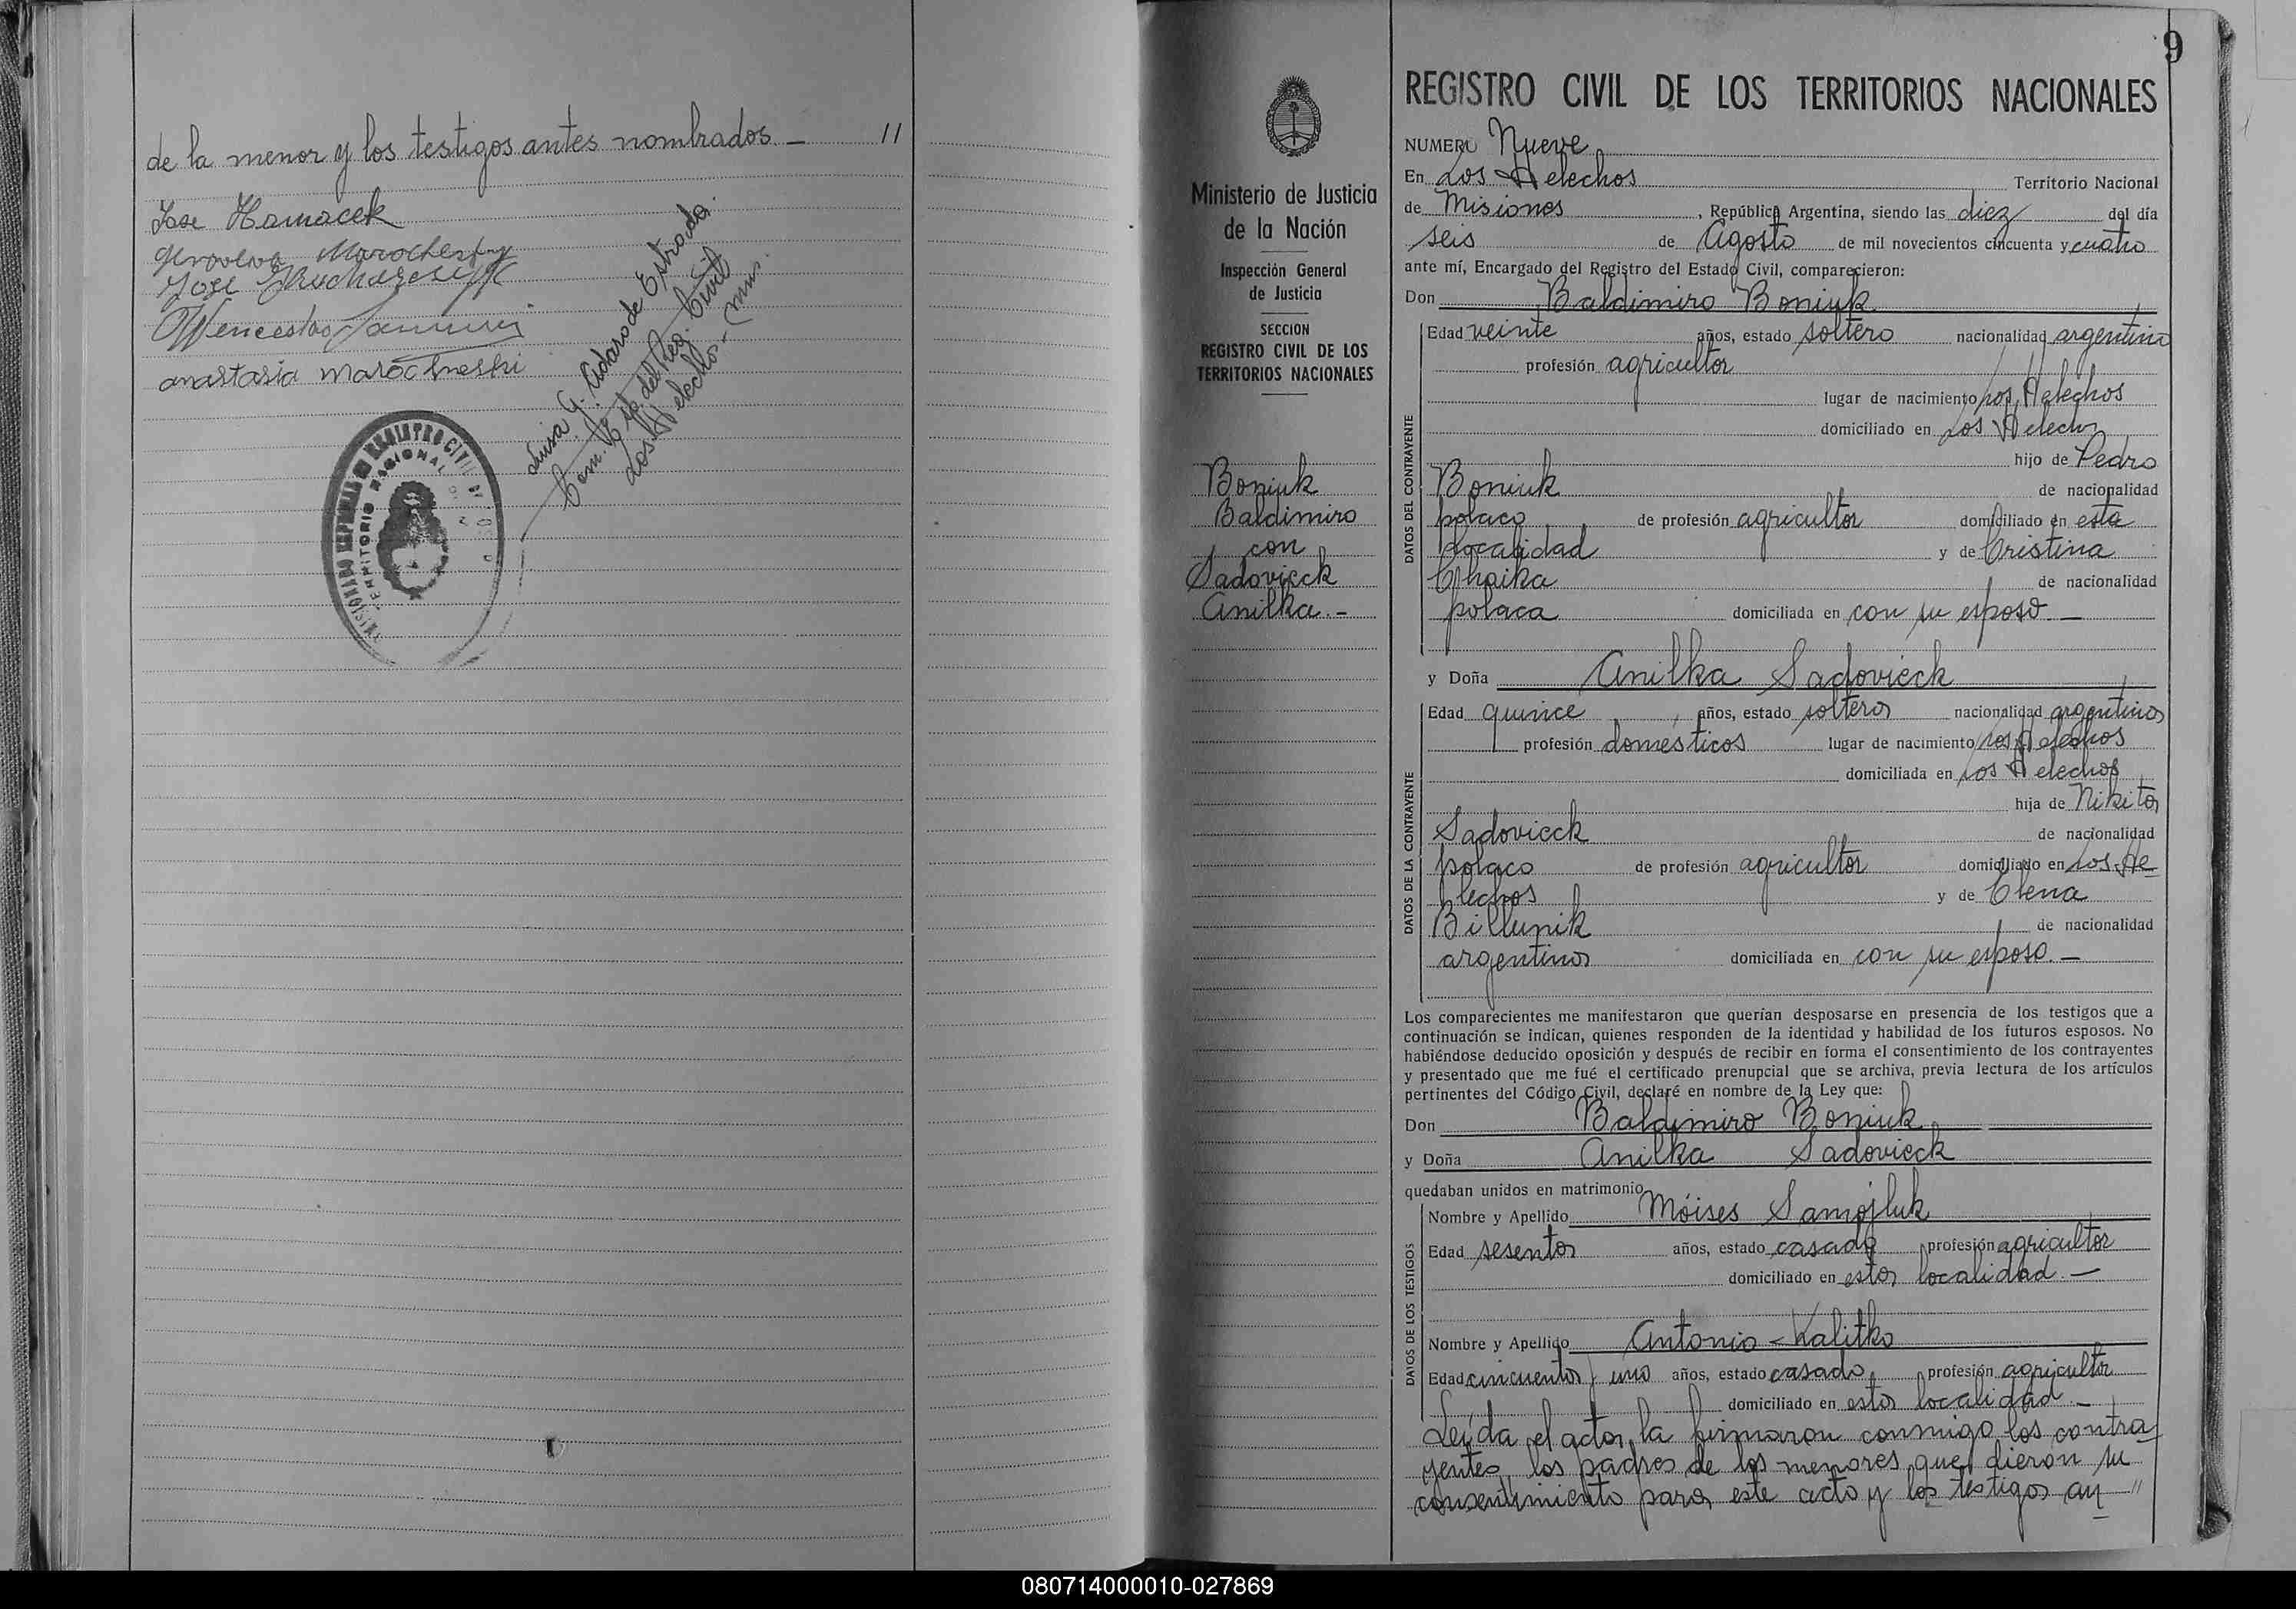 de la menor y los testigos antes nombrados. — 11
Jose Hamacek
Jose
Wenceslao
anastasia marochneski
Luisa G. Adaro de Estrada.
Com. Esp. del Reg. Civil
Los Helechos - (Mnes.
REGISTRO CIVIL
TERRITORIO NACIONAL
9
REGISTRO CIVIL DE LOS TERRITORIOS NACIONALES
Ministerio de Justicia
de la Nación
Inspección General
de Justicia
SECCION
REGISTRO CIVIL DE LOS
TERRITORIOS NACIONALES
Boniuk
Baldimiro
con
Sadovieck
Anilka. -
NUMERO Nueve
En Los Helechos Territorio Nacional
de Misiones, República Argentina, siendo las diez del día
seis de Agosto de mil novecientos cincuenta y cuatro
ante mí, Encargado del Registro del Estado Civil, comparecieron:
Don Baldimiro Boniuk
DATOS DEL CONTRAYENTE
Edad veinte años, estado soltero nacionalidad argentina
profesión agricultor
lugar de nacimiento Los Helechos
domiciliado en Los Helechos
hijo de Pedro
Boniuk de nacionalidad
polaco de profesión agricultor domiciliado en esta
localidad y de Cristina
Chaika de nacionalidad
polaca domiciliada en con su esposo. —
y Doña Anilka Sadovieck
DATOS DE LA CONTRAYENTE
Edad quince años, estado soltera nacionalidad argentina
profesión domésticos lugar de nacimiento Los Helechos
domiciliada en Los Helechos
hija de Nikita
Sadovieck de nacionalidad
polaco de profesión agricultor domiciliado en Los He-
lechos y de Elena
Billunik de nacionalidad
argentina domiciliada en con su esposo. —
Los comparecientes me manifestaron que querían desposarse en presencia de los testigos que a
continuación se indican, quienes responden de la identidad y habilidad de los futuros esposos. No
habiéndose deducido oposición y después de recibir en forma el consentimiento de los contrayentes
y presentado que me fué el certificado prenupcial que se archiva, previa lectura de los artículos
pertinentes del Código Civil, declaré en nombre de la Ley que:
Don Baldimiro Boniuk
y Doña Anilka Sadovieck
quedaban unidos en matrimonio
DATOS DE LOS TESTIGOS
Nombre y Apellido Móises Samojluk
Edad sesenta años, estado casado profesión agricultor
domiciliado en esta localidad. —
Nombre y Apellido Antonio Kalitko
Edad cincuenta y uno años, estado casado profesión agricultor
domiciliado en esta localidad. —
Leída el acta, la firmaron conmigo los contra
yentes, los padres de los menores que dieron su
consentimiento para este acto y los testigos an "
080714000010-027869